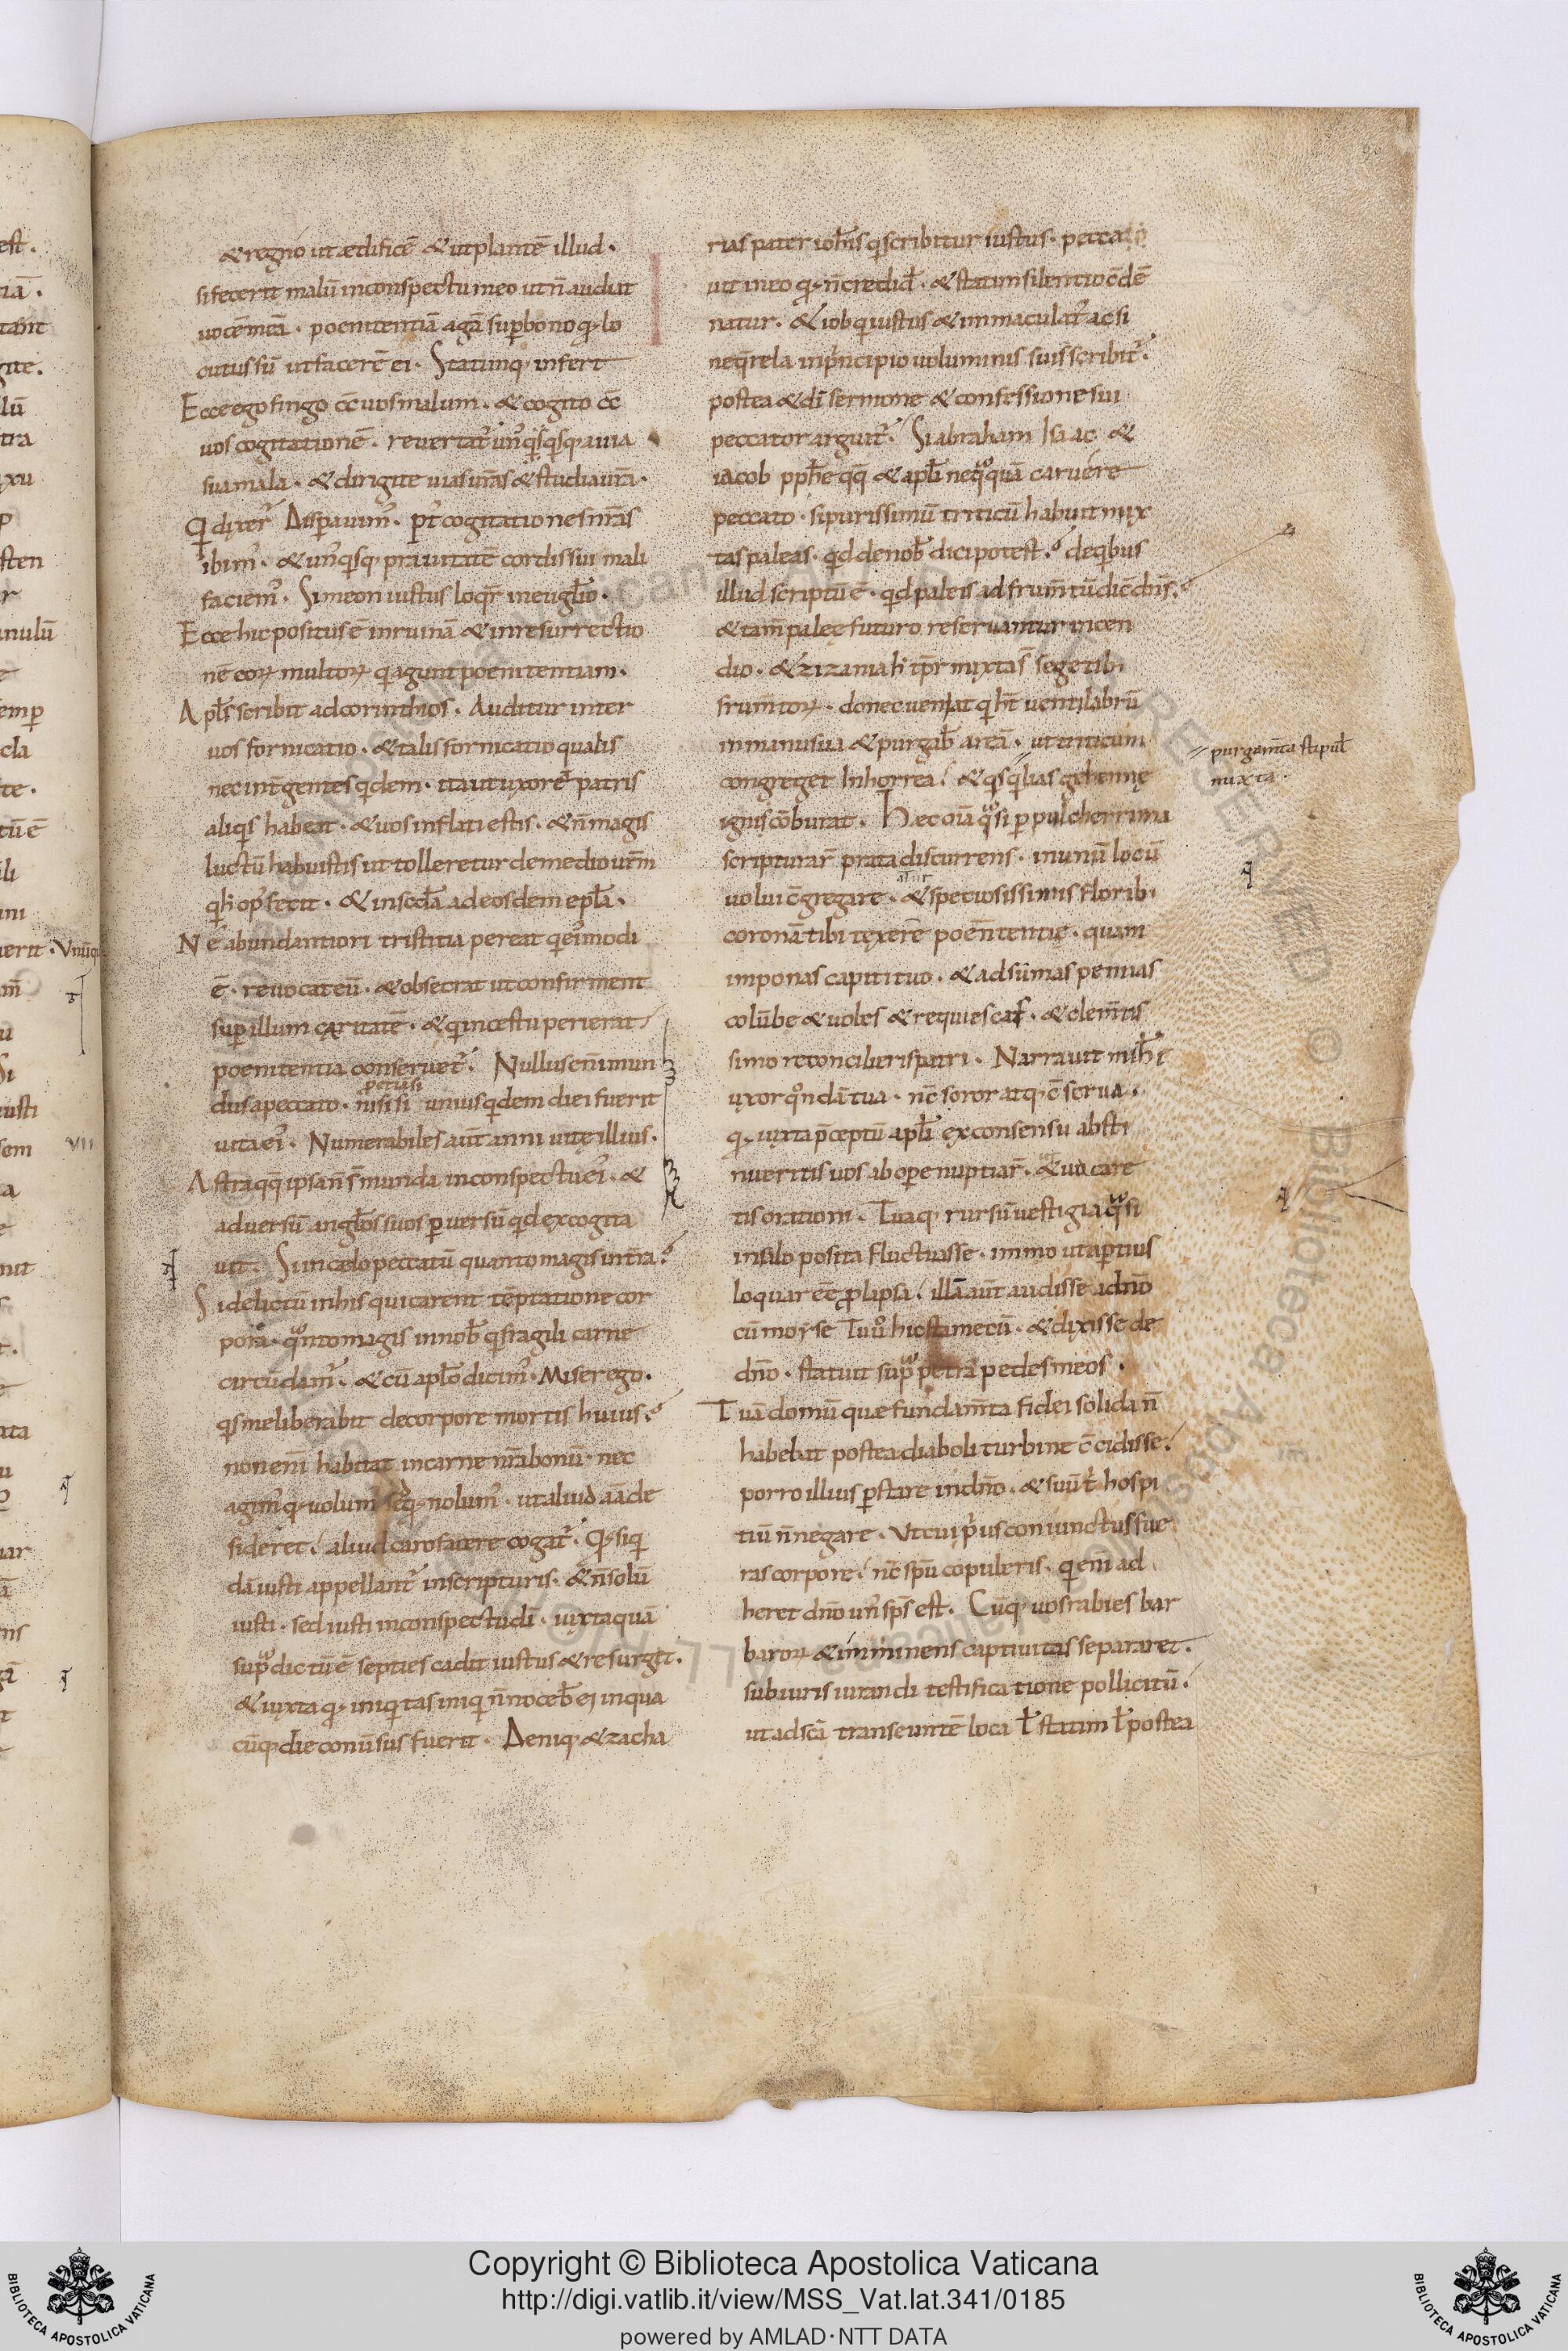 & regno ut ædificē & ut plantē illud.
si fecerit malū in conspectu meo ut n̄ audiat
uocē meā. poenitentiā agā sup bono q lo
cutus sū ut facerē ei. Statimq; infert
Ecce ego fingo cc̄ uos malum. & cogito cc̄
uos cogitationē. reuertat᷑ un᷒qsqsq; a uia
sua mala. & dirigite uias ur̄as & studia ur̄a.
Qi dixer̄ Dispauim᷒. pt̄ cogitationes nr̄as
ibim᷒. & un᷒qsq; prauitatē cordis sui mali
faciem᷒. Simeon iustus loqt᷑ in euḡlio.
Ecce hic positus ē in ruinā & in resurrectio
nē eoꝝ multoꝝ qi agunt poenitentiam.
Apl̄s scribit ad corinthios. Auditur inter
uos fornicatio. & talis fornicatio qualis
nec int̄ gentes qdem. ita ut uxorē patris
aliqis habeat. & uos inflati estis. & n̄ magis
luctū habuistis ut tolleretur de medio ur̄m
q h̄ op᷒ fecit. & in scd̄a ad eosdem epl̄a.
Ne abundantiori tristitia pereat q ei᷒modi
ē. reuocat eū. & obsecrat ut confirment
sup illum caritatē. & qi incestu perierat
poenitentia conseruet᷑. Nullus eni mun
petusi
dus a peccato. nisi si unius qdem diei fuerit
uita ei᷒. Numerabiles aut anni uitę illius.
Astra qq ipsa n̄ s̄ munda in conspectu ei᷒. &
aduersū angl̄os suos peruersū qd excogita
uit. Si in cælo peccatū quanto magis in t̄ra?
Si delictū in his qui carent tēptatione cor
porea. qnto magis in nob̄ qi fragili carne
circūdam᷒. & cū aplō dicim᷒. Miser ego.
qs me liberabit de corpore mortis huius?
non enī habitat in carne nr̄a bonū. nec
agim᷒ q uolum᷒ sed q nolum᷒. ut aliud aīa de
sideret. aliud caro facere cogat᷑. Q si qi
dā iusti appellant᷑ in scripturis. & n̄ solū
iusti. sed iusti in conspectu dī. iuxta quā
supra dictū ē septies cadit iustus & resurgit.
& iuxta q iniqitas iniqi n̄ noceb̄ ei in qua
cūq; die conūsus fuerit. Deniq; & zacha
rias pater ioh̄is qi scribitur iustus. pecca
uit in eo q n̄ credid̄. & statim silentio c̄dē
natur. & iob qi iustus & immaculat᷒ ac si
ne qrela in pncipio uoluminis sui scribit᷑.
postea & dī sermone & confessione sui
peccator arguit᷑. Si abraham Isaac &
iacob pph̄e qq̄ & apl̄i neqquā caruere
peccato. si purissimū triticū habuit mix
tas paleas. qd de nob̄ dici potest? de qibus
illud scriptū ē. qd paleis ad frum̄tū dic̄ dn̄s?
& tam̄ paleę futuro reseruantur incen
dio. & zizania h̄ tp̄r mixta s̄ segetib;
frum̄toꝝ. donec ueniat qi h̄t uentilabrū
in manu sua & purgab̄ areā. ut triticum
congreget In horrea. & qsqlias gehennę
ignis cōburat. Hæc oīa qsi p pulcherrima
scripturaꝝ prata discurrens. in unū locū
uolui c̄gregare. & speciosissimis florib;
coronā tibi texere poenitentię. quam
imponas capiti tuo. & adsūmas pennas
colūbe & uoles & requiescas. & clem̄tis
simo reconcilieris patri. Narrauit mihi
uxor qndā tua. nc̄ soror atq; c̄serua.
q iuxta pceptū apl̄i ex consensu absti
nueritis uos ab ope nuptiaꝝ. & uacare
tis orationi. Tuaq; rursū uestigia qsi
in salo posita fluctuasse. immo ut aptius
loquar ēē plapsa. illā aut audisse a dn̄o
cū moyse Tu u hic sta mecū. & dixisse de
dn̄o. statuit supra petrā pedes meos.
Tuā domū quæ fundam̄ta fidei solida n̄
habebat postea diaboli turbine c̄cidisse.
porro illius pstare in dn̄o. & suū t̄ hospi
tiū n̄ negare. Ut cui pus coniunctus fue
ras corpore. nc̄ spū copuleris. qi enī ad
heret dn̄o un᷒ sps̄ est. Cūq; uos rabies bar
baroꝝ & imminens captiuitas separaret.
sub iuris iurandi testificatione pollicitū.
ut ad scā transeuntē loca ł statim ł postea
purgam̄ta stipul̄
mixta.
Copyright © Biblioteca Apostolica Vaticana
http://digi.vatlib.it/view/MSS_Vat.lat.341/0185
powered by AMLAD·NTT DATA
BIBLIOTECA APOSTOLICA VATICANA
BIBLIOTECA APOSTOLICA VATICANA